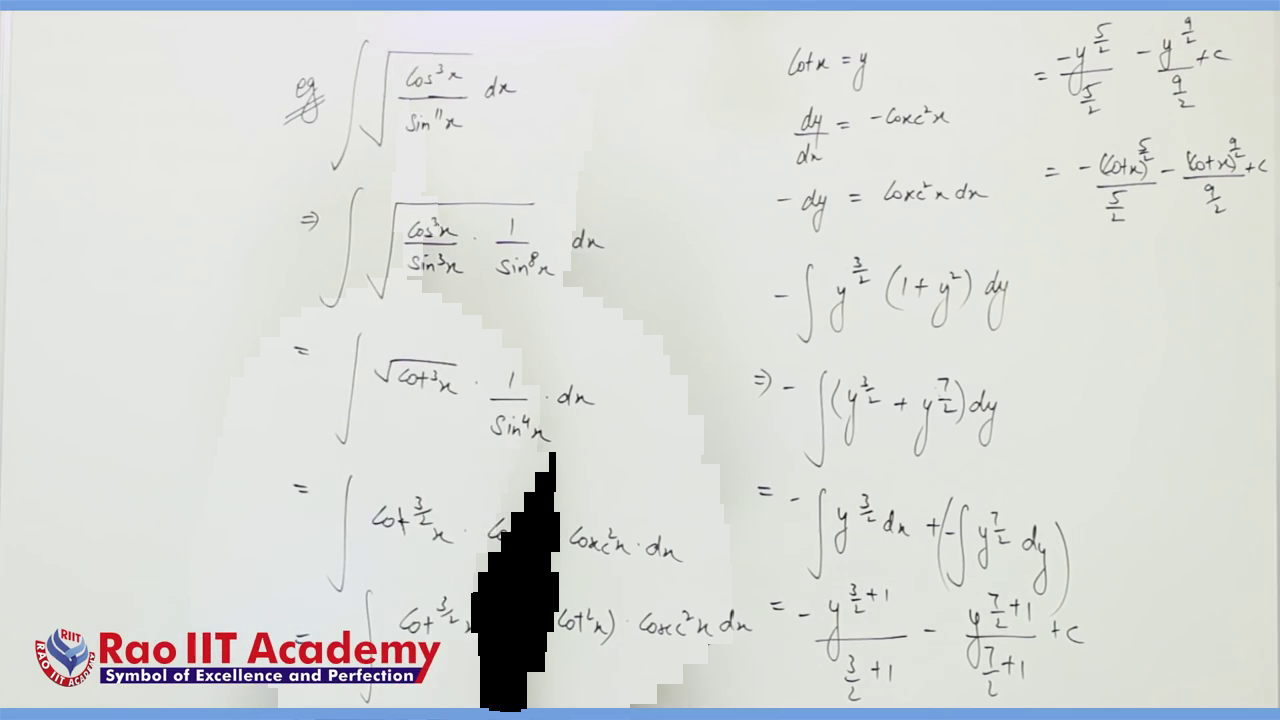 eg ∫ √(cos³x / sin¹¹x) dx
⇒ ∫ √(cos³x / sin³x · 1 / sin⁸x) dx
= ∫ √cot³x · 1 / sin⁴x · dx
= ∫ cot^(3/2) x · cosec²x · dx
= ∫ cot^(3/2) x cot²x) · cosec²x dx
cotx = y
dy/dx = -cosec²x
- dy = cosec²x dx
- ∫ y^(3/2) (1 + y²) dy
⇒ - ∫ (y^(3/2) + y^(7/2)) dy
= - ∫ y^(3/2) dx + (- ∫ y^(7/2) dy)
= - y^(3/2 + 1) / (3/2 + 1) - y^(7/2 + 1) / (7/2 + 1) + c
= -y^(5/2) / (5/2) - y^(9/2) / (9/2) + c
= -(cotx)^(5/2) / (5/2) - (cotx)^(9/2) / (9/2) + c
RIIT
RAO IIT ACADEMY
Rao IIT Academy
Symbol of Excellence and Perfection